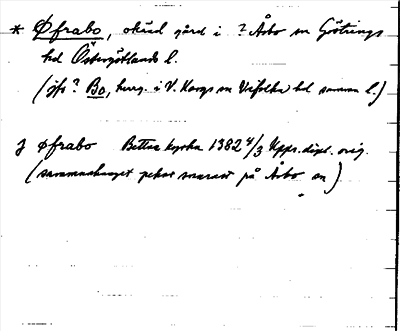 * Øfrabo, okänd gård i ? Åsbo sn Göstrings
hd Östergötlands l.
(jfr ? Bo, herrg. i V. Hargs sn Vifolka hd samma l.)
J Øfrabo Bettna kyrka 1382 4/3 Upps. dipl. orig.
(sammanhanget pekar snarast på Åsbo sn)